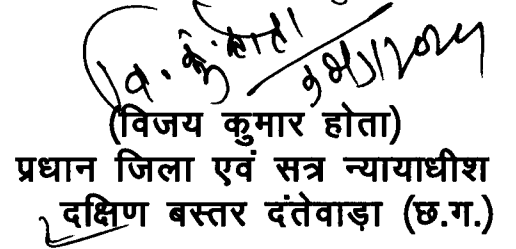 वि. कु. होता
(विजय कुमार होता)
प्रधान जिला एवं सत्र न्यायाधीश
दक्षिण बस्तर दंतेवाड़ा (छ.ग.)